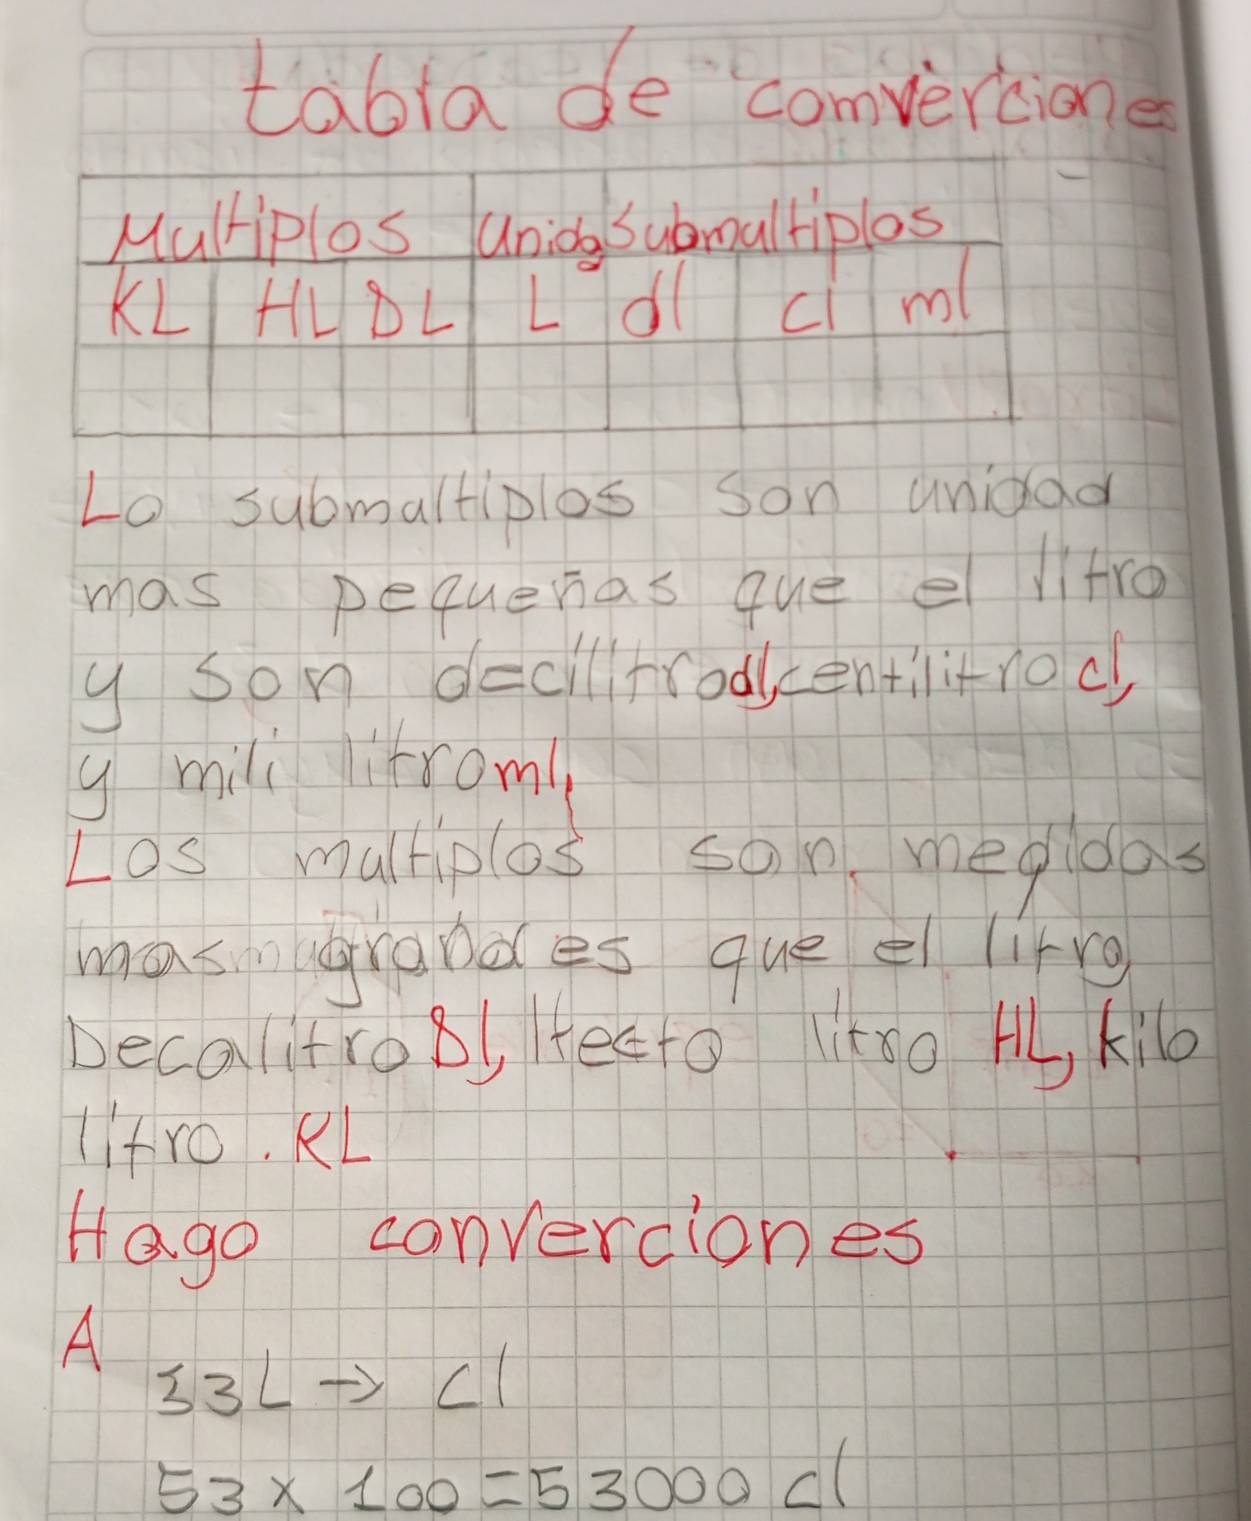 tabla de comverciones
Multiplos Unida Submultiplos
KL HL DL L dl cl ml
Lo submultiplos son unidad
mas pequeñas que el litro
y son decilitro dl, centilitro cl,
y mili litro ml,
Los multiplos son. medidas
mas grandes que el litro
Decalitro Dl, Hecto litro HL, kilo
litro. KL
Hago converciones
A
53L → cl
53 x 100 = 53000 cl